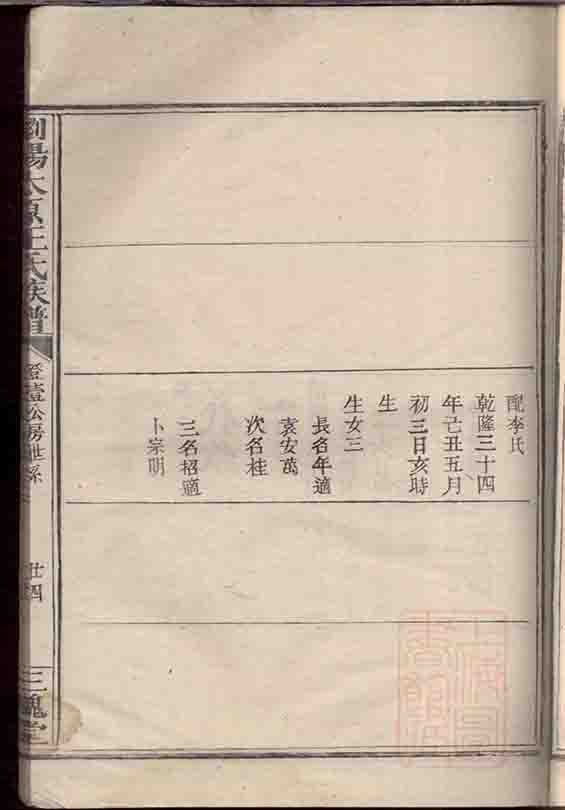 配李氏
乾隆三十四
年己丑五月
初三日亥時
生
生女三
長名年適
袁安萬
次名桂
三名招適
卜宗明
瀏陽太原王氏族譜
公房世系
廿四
三槐堂
上海圖
書館藏